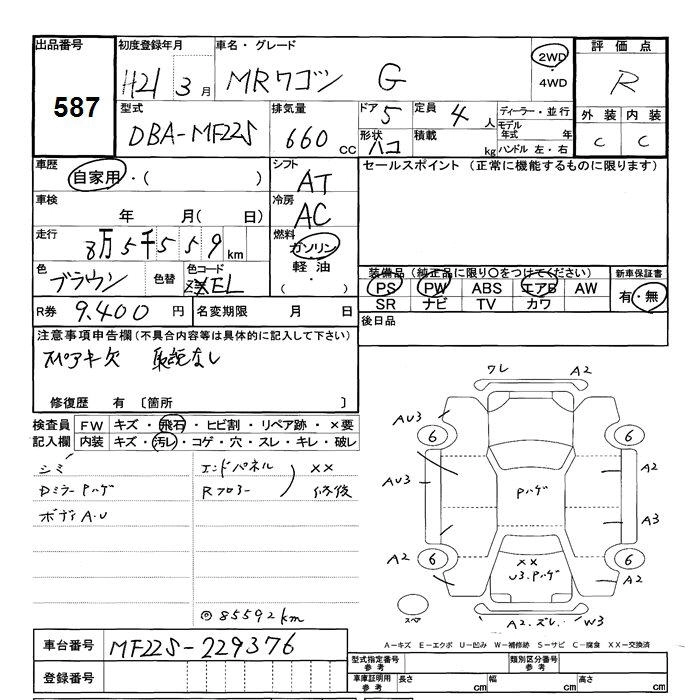 出品番号 初度登録年月 車名・グレード 評価点
587 H21 3月 MRワゴン G 2WD・4WD R
型式 排気量 ドア 5 定員 4人 ディーラー・並行 外装 内装
DBA-MF22S 660cc 形状 ハコ 積載 kg モデル年式 年 C C
ハンドル 左・右
車歴 自家用・( ) シフト AT セールスポイント (正常に機能するものに限ります)
車検 年 月( 日) 冷房 AC
走行 8万5千559km 燃料 ガソリン・軽油・( )
色 ブラウン 色替 色コード ZEL 装備品(純正品に限り○をつけてください) 新車保証書
PS PW ABS エアB AW 有・無
R券 9.400円 名変期限 月 日 SR ナビ TV カワ
注意事項申告欄(不具合内容等は具体的に記入して下さい) 後日品
スペアキ欠 取説なし
修復歴 有 〔箇所 〕
検査員 FW キズ・飛石・ヒビ割・リペア跡・×要
記入欄 内装 キズ・汚レ・コゲ・穴・スレ・キレ・破レ
シミ エンドパネル ××
Dミラー Pハゲ Rフロアー 修後
ボディ A.U
◎85592km
ワレ A2
AU3 6 6
AU3 Pハゲ A2
A3
A2 6 ×× 6
U3.Pハゲ A2
スペア A2.ズレ. W3
A-キズ E-エクボ U-凹み W-補修跡 S-サビ C-腐食 XX-交換済
車台番号 MF22S-229376
型式指定番号参考 類別区分番号参考
登録番号 車庫証明用参考 長さ cm 幅 cm 高さ cm